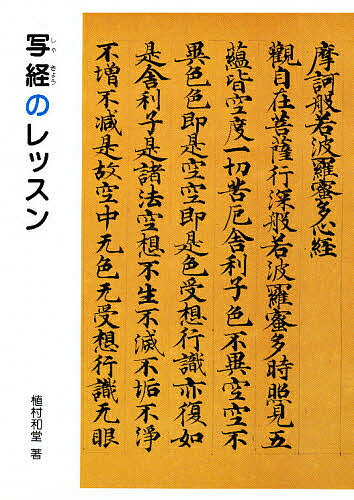 しゃきょう
写経のレッスン
植村和堂 著
摩訶般若波羅蜜多心経
觀自在菩薩行深般若波羅蜜多時照見五
蘊皆空度一切苦厄舍利子色不異空空不
異色色即是空空即是色受想行識亦復如
是舍利子是諸法空想不生不滅不垢不淨
不增不減是故空中无色无受想行識无眼